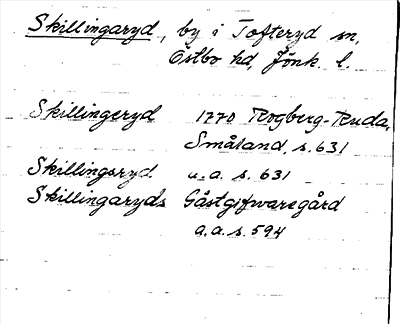 Skillingaryd, by i Tofteryd sn,
Östbo hd, Jönk. l.
Skillingeryd 1770 Rogberg-Ruda,
Småland, s. 631
Skillingsryd u.a. s. 631
Skillingaryds Gästgifwaregård
a.a. s. 594